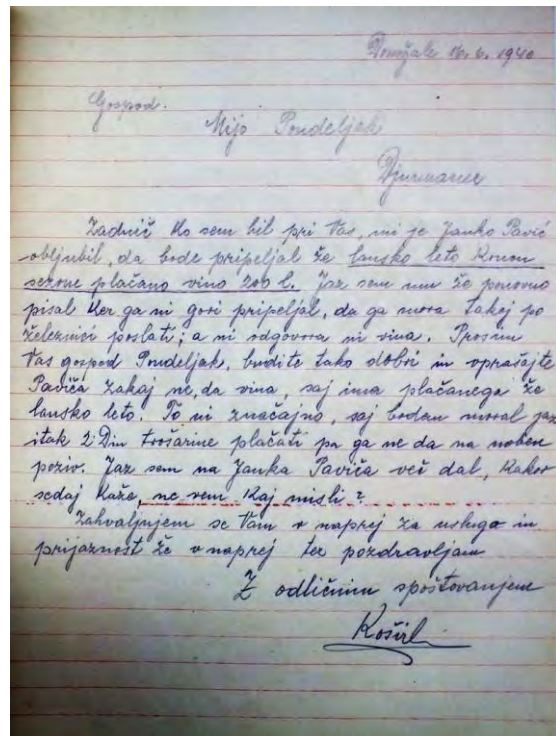 Domžale 16. 6. 1940
Gospod.
Mijo Pondeljak
Djurmanec
Zadnič ko sem bil pri Vas, mi je Janko Pavić
obljubil, da bode pripeljal že lansko leto koncu
sezone plačano vino 200 l. Jaz sem mu že ponovno
pisal ker ga ni gori pripeljal, da ga mora takoj po
železnici poslati; a ni odgovora ni vina. Prosim
Vas gospod Pondeljak, budite tako dobri in vprašajte
Paviča zakaj ne, da vina, saj ima plačanega že
lansko leto. To ni značajno, saj bodem moral jaz
itak 2 Din trošarine plačati pa ga ne da na noben
poziv. Jaz sem na Janka Paviča več dal, kakor
sedaj kaže, ne vem kaj misli?
Zahvaljujem se Vam v naprej za uslugo in
prijaznost že v naprej ter pozdravljam
Z odličnim spoštovanjem
Košir